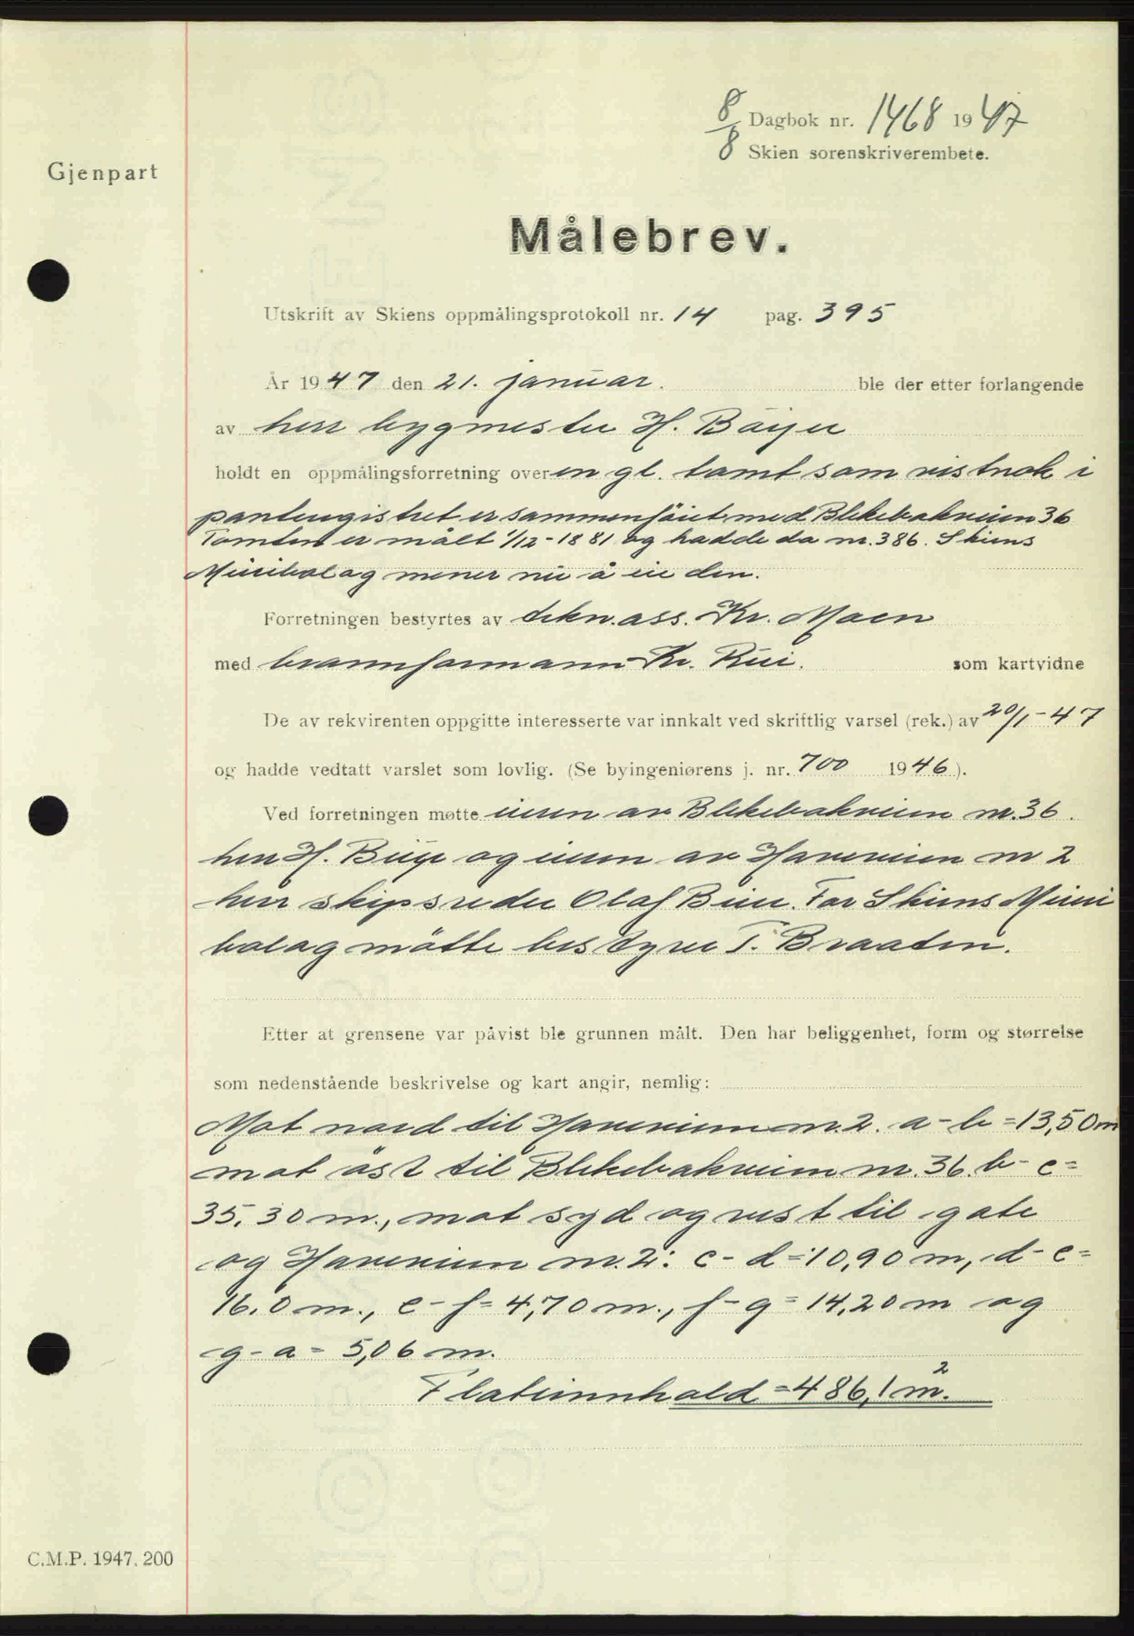 8/8 Dagbok nr. 1468 1947
Skien sorenskriverembete.
Gjenpart
Målebrev.
Utskrift av Skiens oppmålingsprotokoll nr. 14 pag. 395
År 1947 den 21. januar. ble der etter forlangende
av herr bygmester H. Böyer
holdt en oppmålingsforretning over en gl. tomt som vistnok i
panteregistret er sammenföiet med Blekebakveien 36
Tomten er målt 1/12-1881 og hadde da nr. 386. Skiens
Meieribolag mener nu å eie den.
Forretningen bestyrtes av tekn. ass. Kr. Moen
med brannformann Kr. Rui. som kartvidne
De av rekvirenten oppgitte interesserte var innkalt ved skriftlig varsel (rek.) av 20/1-47
og hadde vedtatt varslet som lovlig. (Se byingeniørens j. nr. 700 1946).
Ved forretningen møtte eieren av Blekebakveien nr. 36.
herr H. og eieren av Haveveien nr 2
herr skipsreder Olaf For Skiens Meieri
bolag mötte bestyrer T. Braaten.
Etter at grensene var påvist ble grunnen målt. Den har beliggenhet, form og størrelse
som nedenstående beskrivelse og kart angir, nemlig:
Mot nord til Haveveien nr. 2. a-b=13,50m
mot öst til Blekebakveien nr. 36. b-c=
35.30 m., mot syd og vest til gate
og Haveveien nr. 2: c-d=10,90 m, d-e=
16.0 m., e-f=4,70 m., f-g=14,20 m og
g-a=5,06 m.
Flateinnhold=486,1 m².
C.M.P. 1947. 200